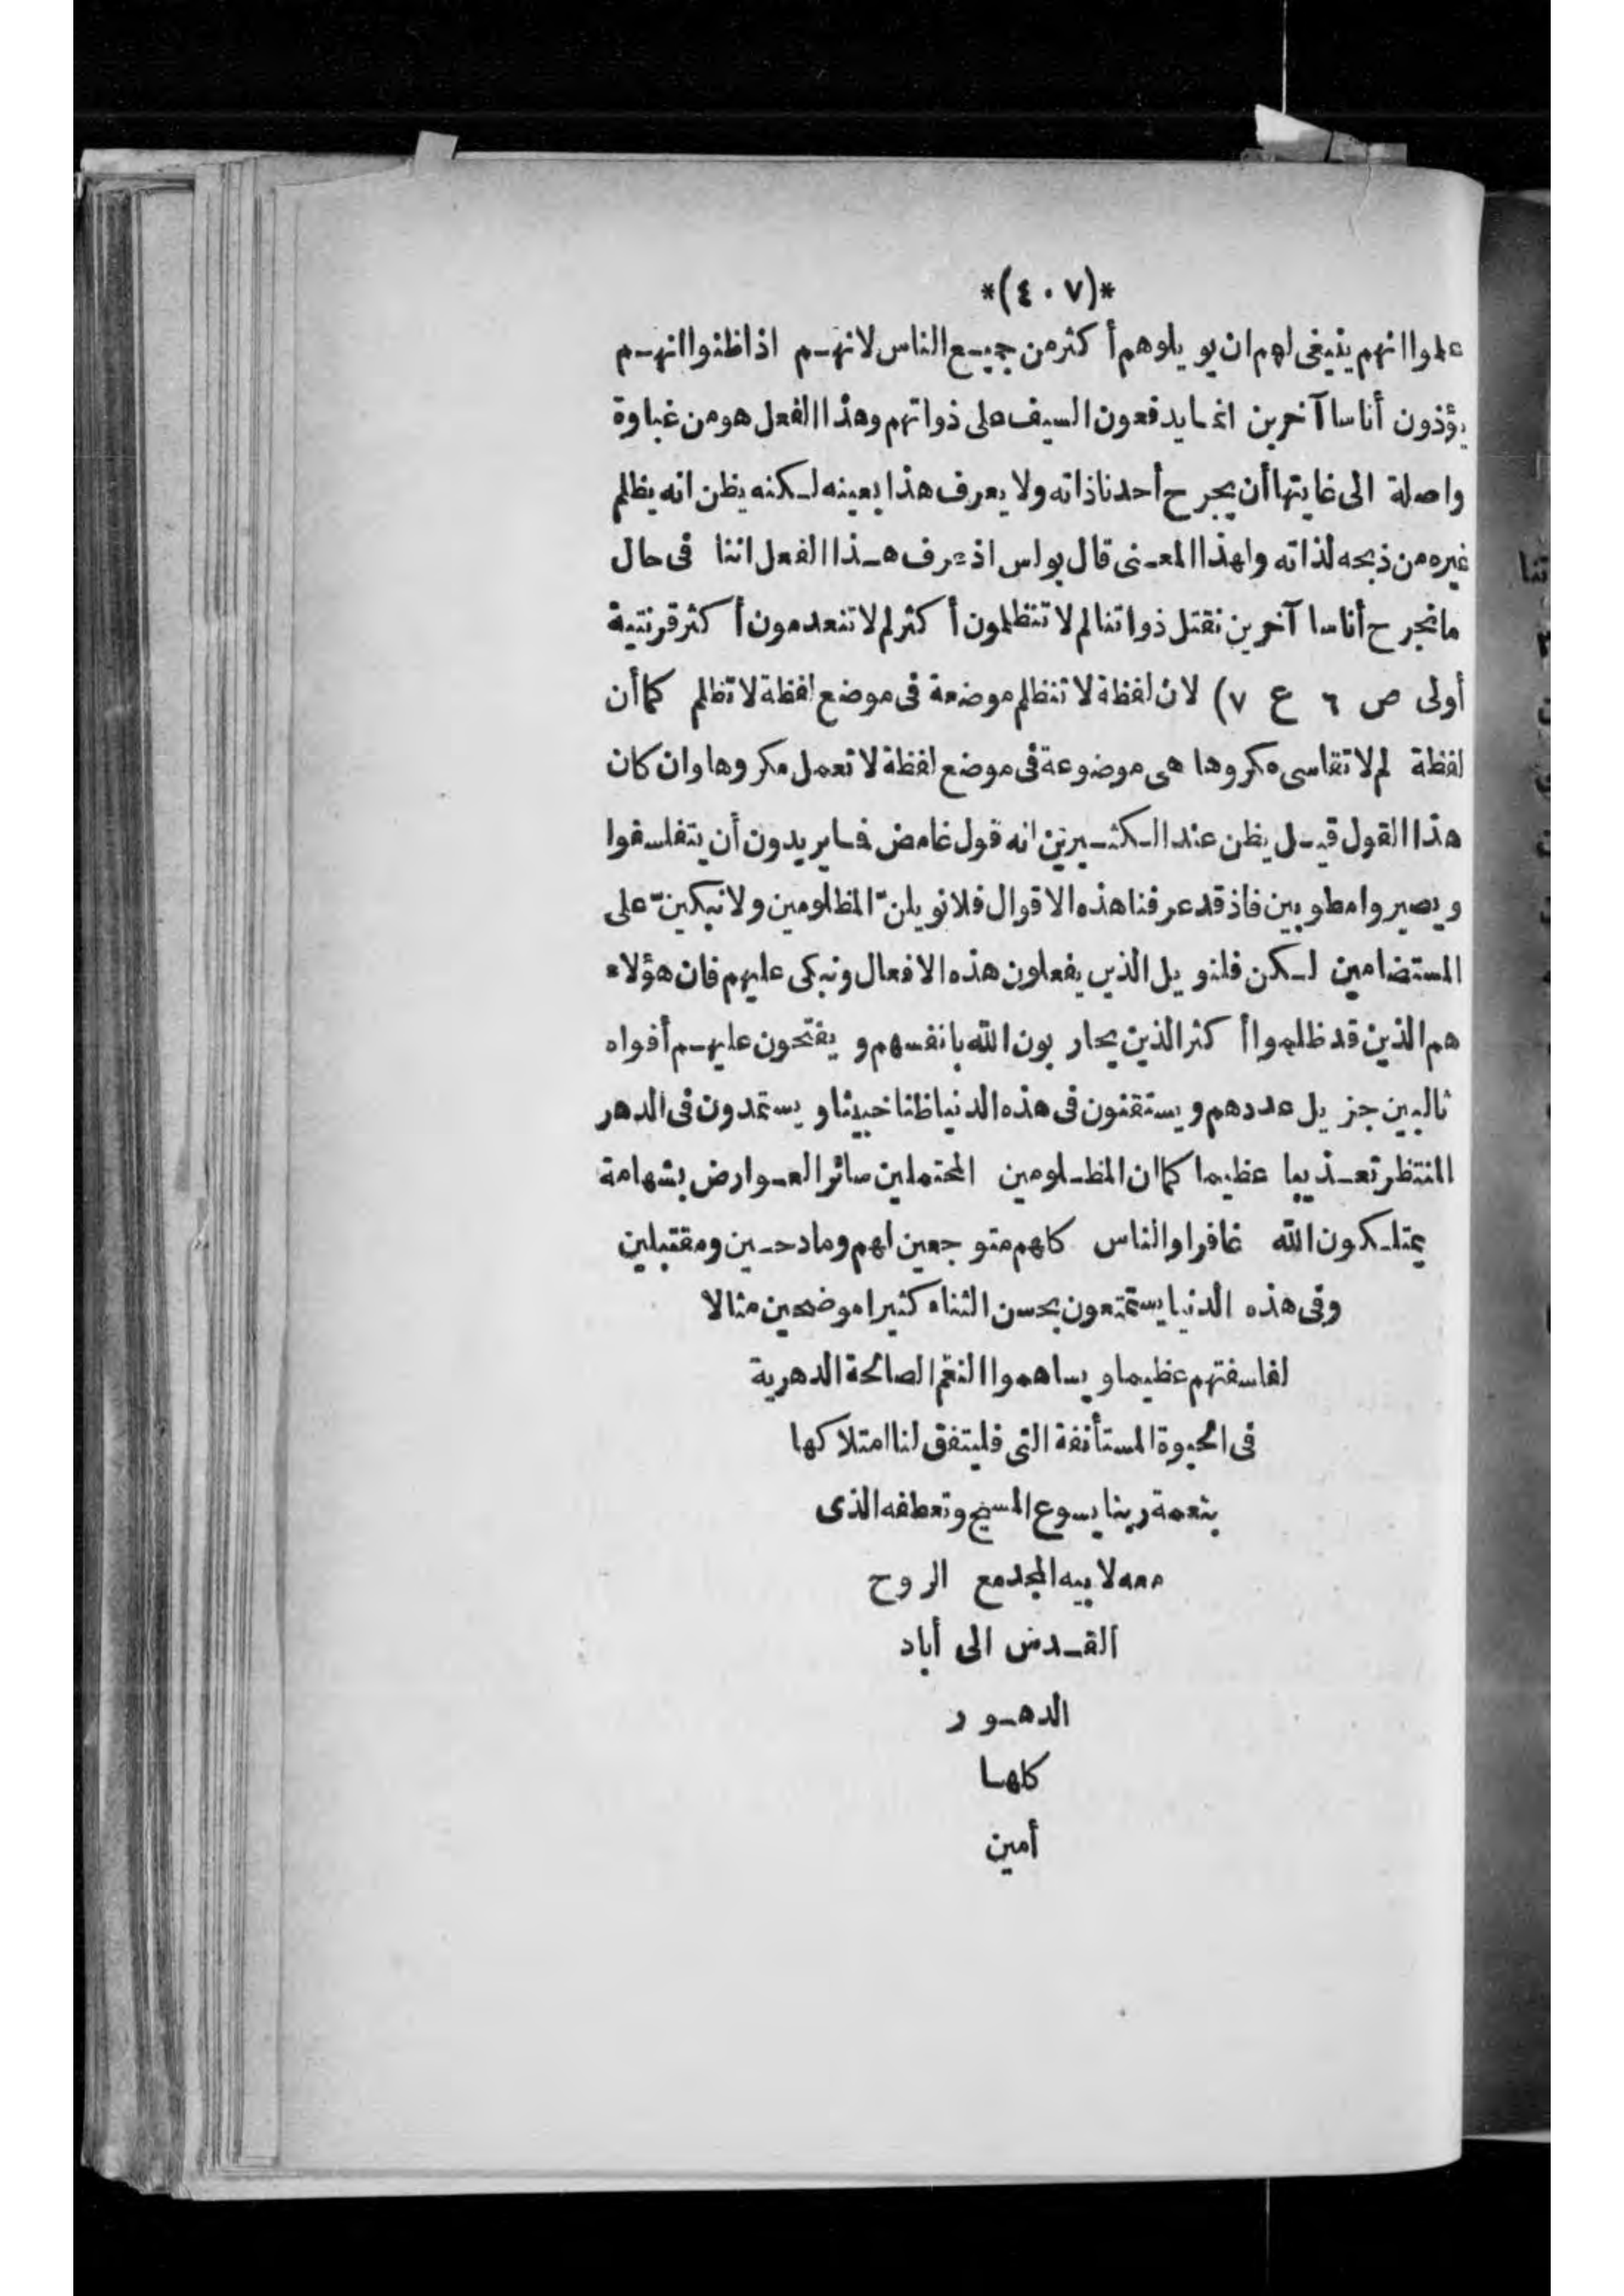 *(٤٠٧)*
علموا انهم ينبغى لهم ان يويلوهم أكثر من جميع الناس لانهم اذا ظنوا انهم
يؤذون أناسا آخرين انما يدفعون السيف على ذواتهم وهذا الفعل هو من غباوة
واصلة الى غايتها أن يجرح أحدنا ذاته ولا يعرف هذا بعينه لكنه يظن انه يظلم
غيره من ذبحه لذاته ولهذا المعنى قال بولس اذ عرف هذا الفعل اننا فى حال
ما نجرح أناسا آخرين نقتل ذواتنا لم لا تنظلمون أكثر لم لا تنعدمون أكثر قرنتية
أولى ص ٦ ع ٧) لان لفظة لا تنظلم موضعة فى موضع لفظة لا تظلم كما أن
لفظة لم لا تقاسى مكروها هى موضوعة فى موضع لفظة لا تعمل مكروها وان كان
هذا القول قيل يظن عند الكثيرين انه قول غامض فما يريدون أن يتفلسفوا
ويصيروا مطوبين فاذ قد عرفنا هذه الاقوال فلا نويلنّ المظلومين ولا نبكينّ على
المستضامين لكن فلنويل الذين يفعلون هذه الافعال ونبكى عليهم فان هؤلاء
هم الذين قد ظلموا أكثر الذين يحاربون الله بانفسهم ويفتحون عليهم أفواه
ثالبين جزيل عددهم ويستقنون فى هذه الدنيا ظنا خبيثا ويستمدون فى الدهر
المنتظر تعذيبا عظيما كما ان المظلومين المحتملين سائر العوارض بشهامة
يمتلكون الله غافرا والناس كلهم متوجعين لهم ومادحين ومقتبلين
وفى هذه الدنيا يستمتعون بحسن الثناء كثيرا موضحين مثالا
لفلسفتهم عظيما ويساهموا النعم الصالحة الدهرية
فى الحيوة المستأنفة التى فليتفق لنا امتلاكها
بنعمة ربنا يسوع المسيح وتعطفه الذى
معه لابيه المجد مع الروح
القدس الى أباد
الدهور
كلها
أمين
تنا